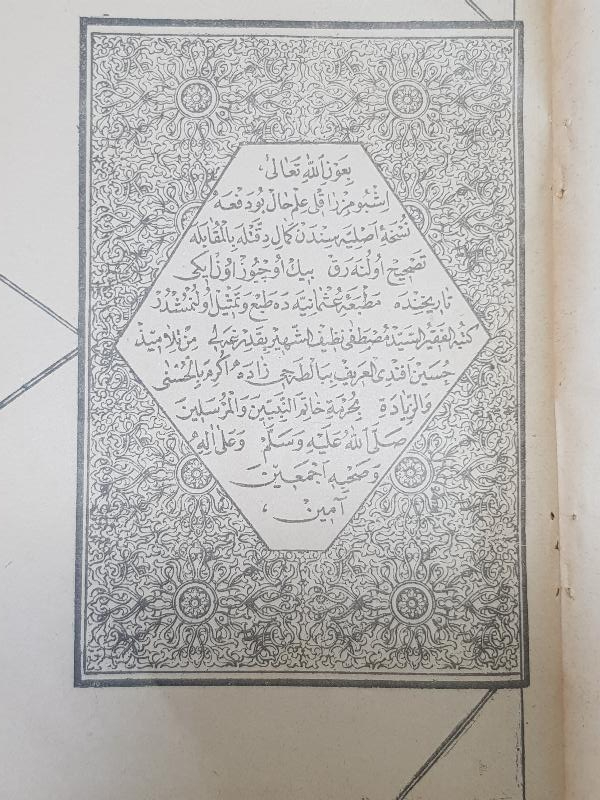 بِعَوْنِ اللّٰهِ تَعَالٰى
اشبو مزراقلى علم حال بو دفعه
نسخۀ اصليه سندن كمال دقتله بالمقابله
تصحيح اولنه رق بيك اوچيوز اون ايكى
تاريخنده مطبعۀ عثمانيه ده طبع وتمثيل اولنمشدر
كتبه الفقير السيد مصطفى نظيف الشهير بقدرغه لى من تلاميذ
حسين افندى العريف ببالطه جى زاده اكرم بالحسنى
والزيادة بحرمة خاتم النبيين والمرسلين
صلى الله عليه وسلم وعلى اله
وصحبه اجمعين
آمين